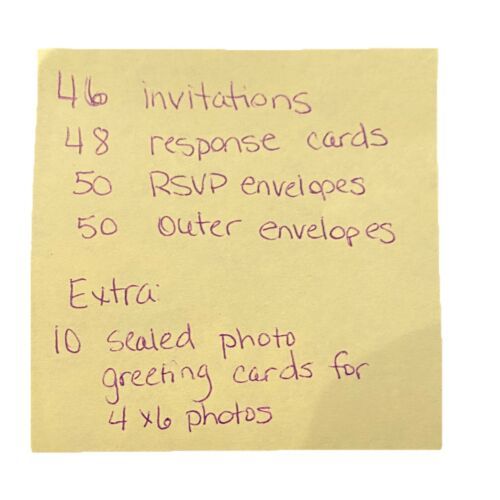 46 invitations
48 response cards
50 RSVP envelopes
50 Outer envelopes
Extra:
10 sealed photo
greeting cards for
4 x6 photos